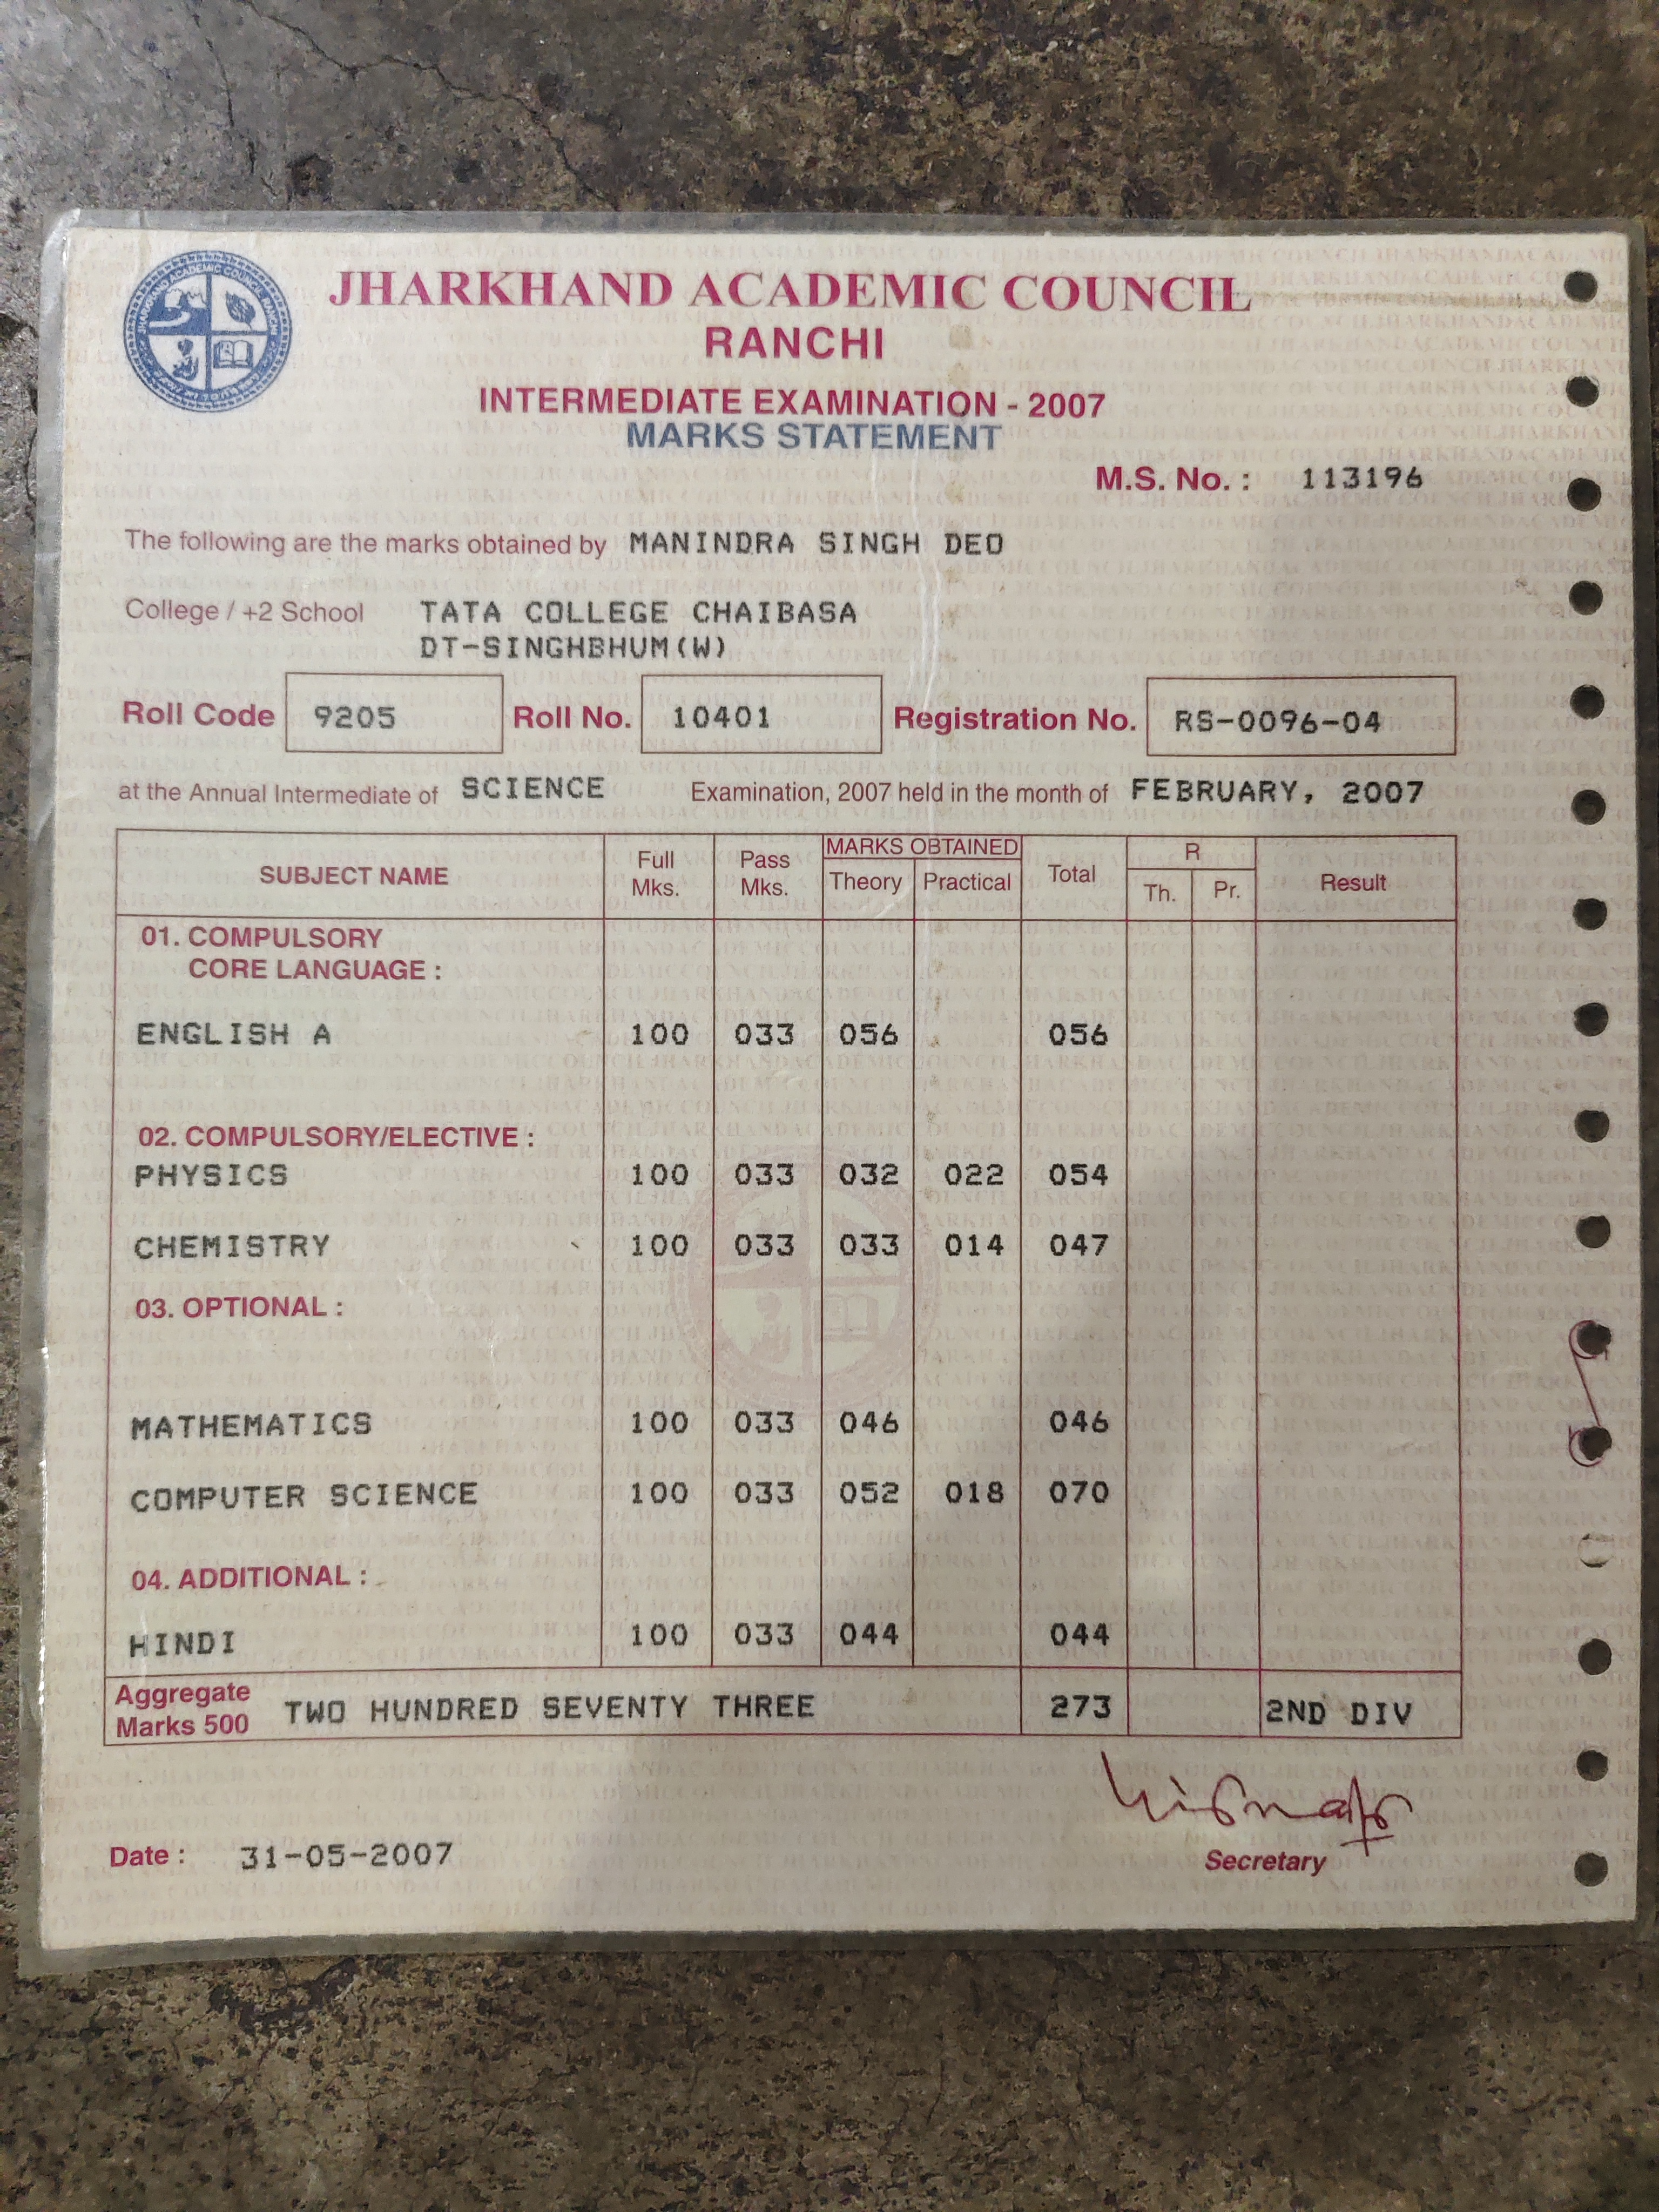 JHARKHAND ACADEMIC COUNCIL
RANCHI
INTERMEDIATE EXAMINATION - 2007
MARKS STATEMENT
M.S. No. : 113196
The following are the marks obtained by MANINDRA SINGH DEO
College / +2 School TATA COLLEGE CHAIBASA
DT-SINGHBHUM(W)
Roll Code 9205 Roll No. 10401 Registration No. RS-0096-04
at the Annual Intermediate of SCIENCE Examination, 2007 held in the month of FEBRUARY, 2007
SUBJECT NAME Full Mks. Pass Mks. MARKS OBTAINED Theory Practical Total R Th. Pr. Result
01. COMPULSORY
CORE LANGUAGE :
ENGLISH A 100 033 056 056
02. COMPULSORY/ELECTIVE :
PHYSICS 100 033 032 022 054
CHEMISTRY 100 033 033 014 047
03. OPTIONAL :
MATHEMATICS 100 033 046 046
COMPUTER SCIENCE 100 033 052 018 070
04. ADDITIONAL :
HINDI 100 033 044 044
Aggregate Marks 500 TWO HUNDRED SEVENTY THREE 273 2ND DIV
Date : 31-05-2007
Secretary